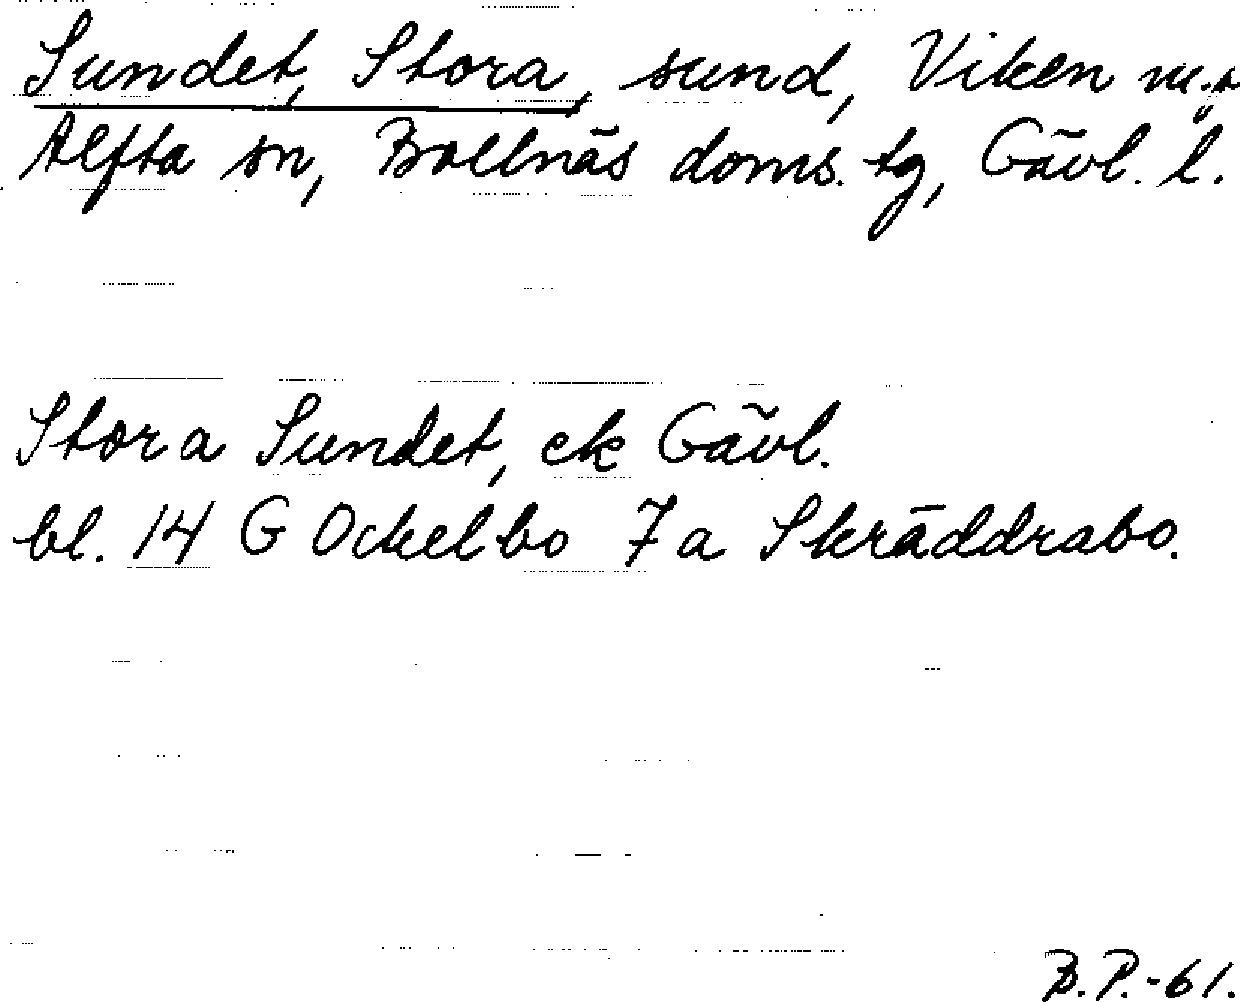 Sundet, Stora, sund, Viken
Alfta sn, Bollnäs doms. tg, Gävl. l.
Stora Sundet, ek Gävl.
bl. 14 G Ockelbo 7 a Skräddrabo.
B.P.-61.